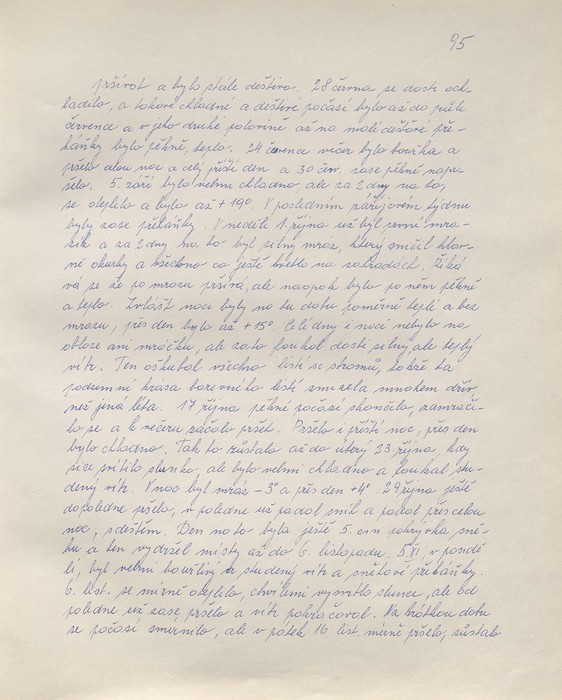 95
pršívat a bylo stále deštivo. 28 června se dosti och-
ladilo, a takové chladné a deštivé počasí bylo až do půli
července a v jeho druhé polovině až na malé deštové pře-
háňky bylo pěkně, teplo. 24 července večer byla bouřka a
pršelo celou noc a celý příští den a 30 červ. zase pěkně napr-
šelo. 5. září bylo velmi chladno, ale za 2 dny na to,
se oteplilo a bylo až +19°. V posledním zářijovém týdnu
byly zase přeháňky. V neděli 1. října už byl první mra-
zík a za 2 dny na to byl silný mráz, který zničil hlav-
ně okurky a všechno co ještě kvetlo na zahradách. Říká-
vá se že po mrazu pršívá, ale naopak bylo po něm pěkně
a teplo. Zvlášť noce byly na tu dobu poměrně teplé a bez
mrazu, přes den bylo až +15°. Celé dny i noce nebylo na
obloze ani mráčku, ale zato foukal dosti silný, ale teplý
vítr. Ten oškubal všechno listí se stromů, takže ta
podzimní krása barevného listí zmizela mnohem dřív,
než jiná léta. 17 října pěkné počasí skončilo, zamrači-
lo se a k večeru začalo pršet. Pršelo i příští noc, přes den
bylo chladno. Tak to zůstalo až do úterý 23. října, kdy
sice svítilo slunko, ale bylo velmi chladno a foukal stu-
dený vítr. V noci byl mráz -3° a přes den +4°. 29 října ještě
dopoledne pršelo, v poledne už padal sníh a padal přes celou
noc, s deštěm. Den na to byla ještě 5. cm pokrývka sně-
hu a ten vydržel místy až do 6. listopadu. 5. XI v pondě-
lí, byl velmi bouřlivý a studený vítr a sněhové přeháňky.
6. list. se mírně oteplilo, chvílemi vysvitlo slunce, ale od
poledne už zase pršelo a vítr pokračoval. Na krátkou dobu
se počasí zmírnilo, ale v pátek 16 list. mírně pršelo, zůstalo